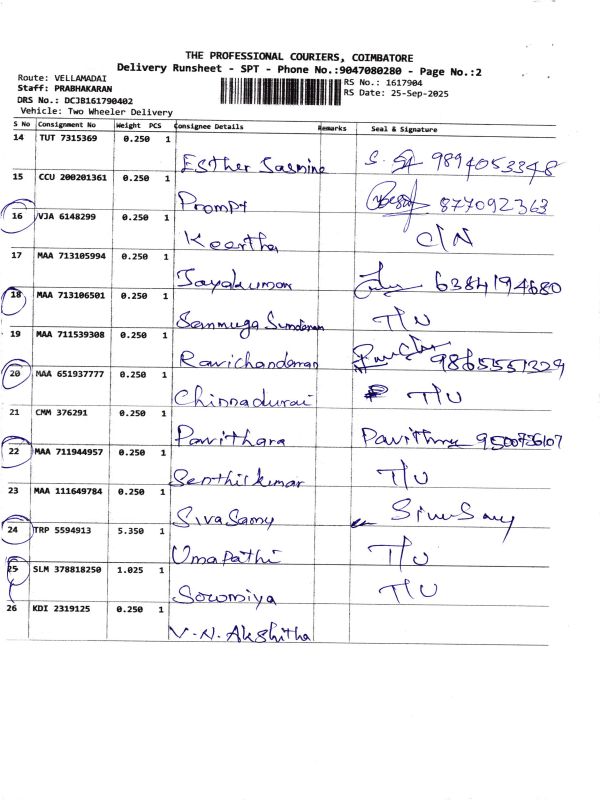 THE PROFESSIONAL COURIERS, COIMBATORE
Delivery Runsheet - SPT - Phone No.:9047080280 - Page No.:2
Route: VELLAMADAI RS No.: 1617904
Staff: PRABHAKARAN RS Date: 25-Sep-2025
DRS No.: DCJB161790402
Vehicle: Two Wheeler Delivery
S No Consignment No Weight PCS Consignee Details Remarks Seal & Signature
14 TUT 7315369 0.250 1
Esther Jasmine 9894053348
15 CCU 200201361 0.250 1
Prompt 877092363
16 VJA 6148299 0.250 1
Keertha C/N
17 MAA 713105994 0.250 1
Jayakumar 6384194680
18 MAA 713106501 0.250 1
Sanmuga Sundaram T/U
19 MAA 711539308 0.250 1
Ravichandaran 9865551329
20 MAA 651937777 0.250 1
Chinnadurai T/U
21 CMM 376291 0.250 1
Pavithara 9500736107
22 MAA 711944957 0.250 1
Senthilkumar T/U
23 MAA 111649784 0.250 1
SivaSamy
24 TRP 5594913 5.350 1
Umapathi T/U
25 SLM 378818250 1.025 1
Sowmiya T/U
26 KDI 2319125 0.250 1
V.N. Akshitha